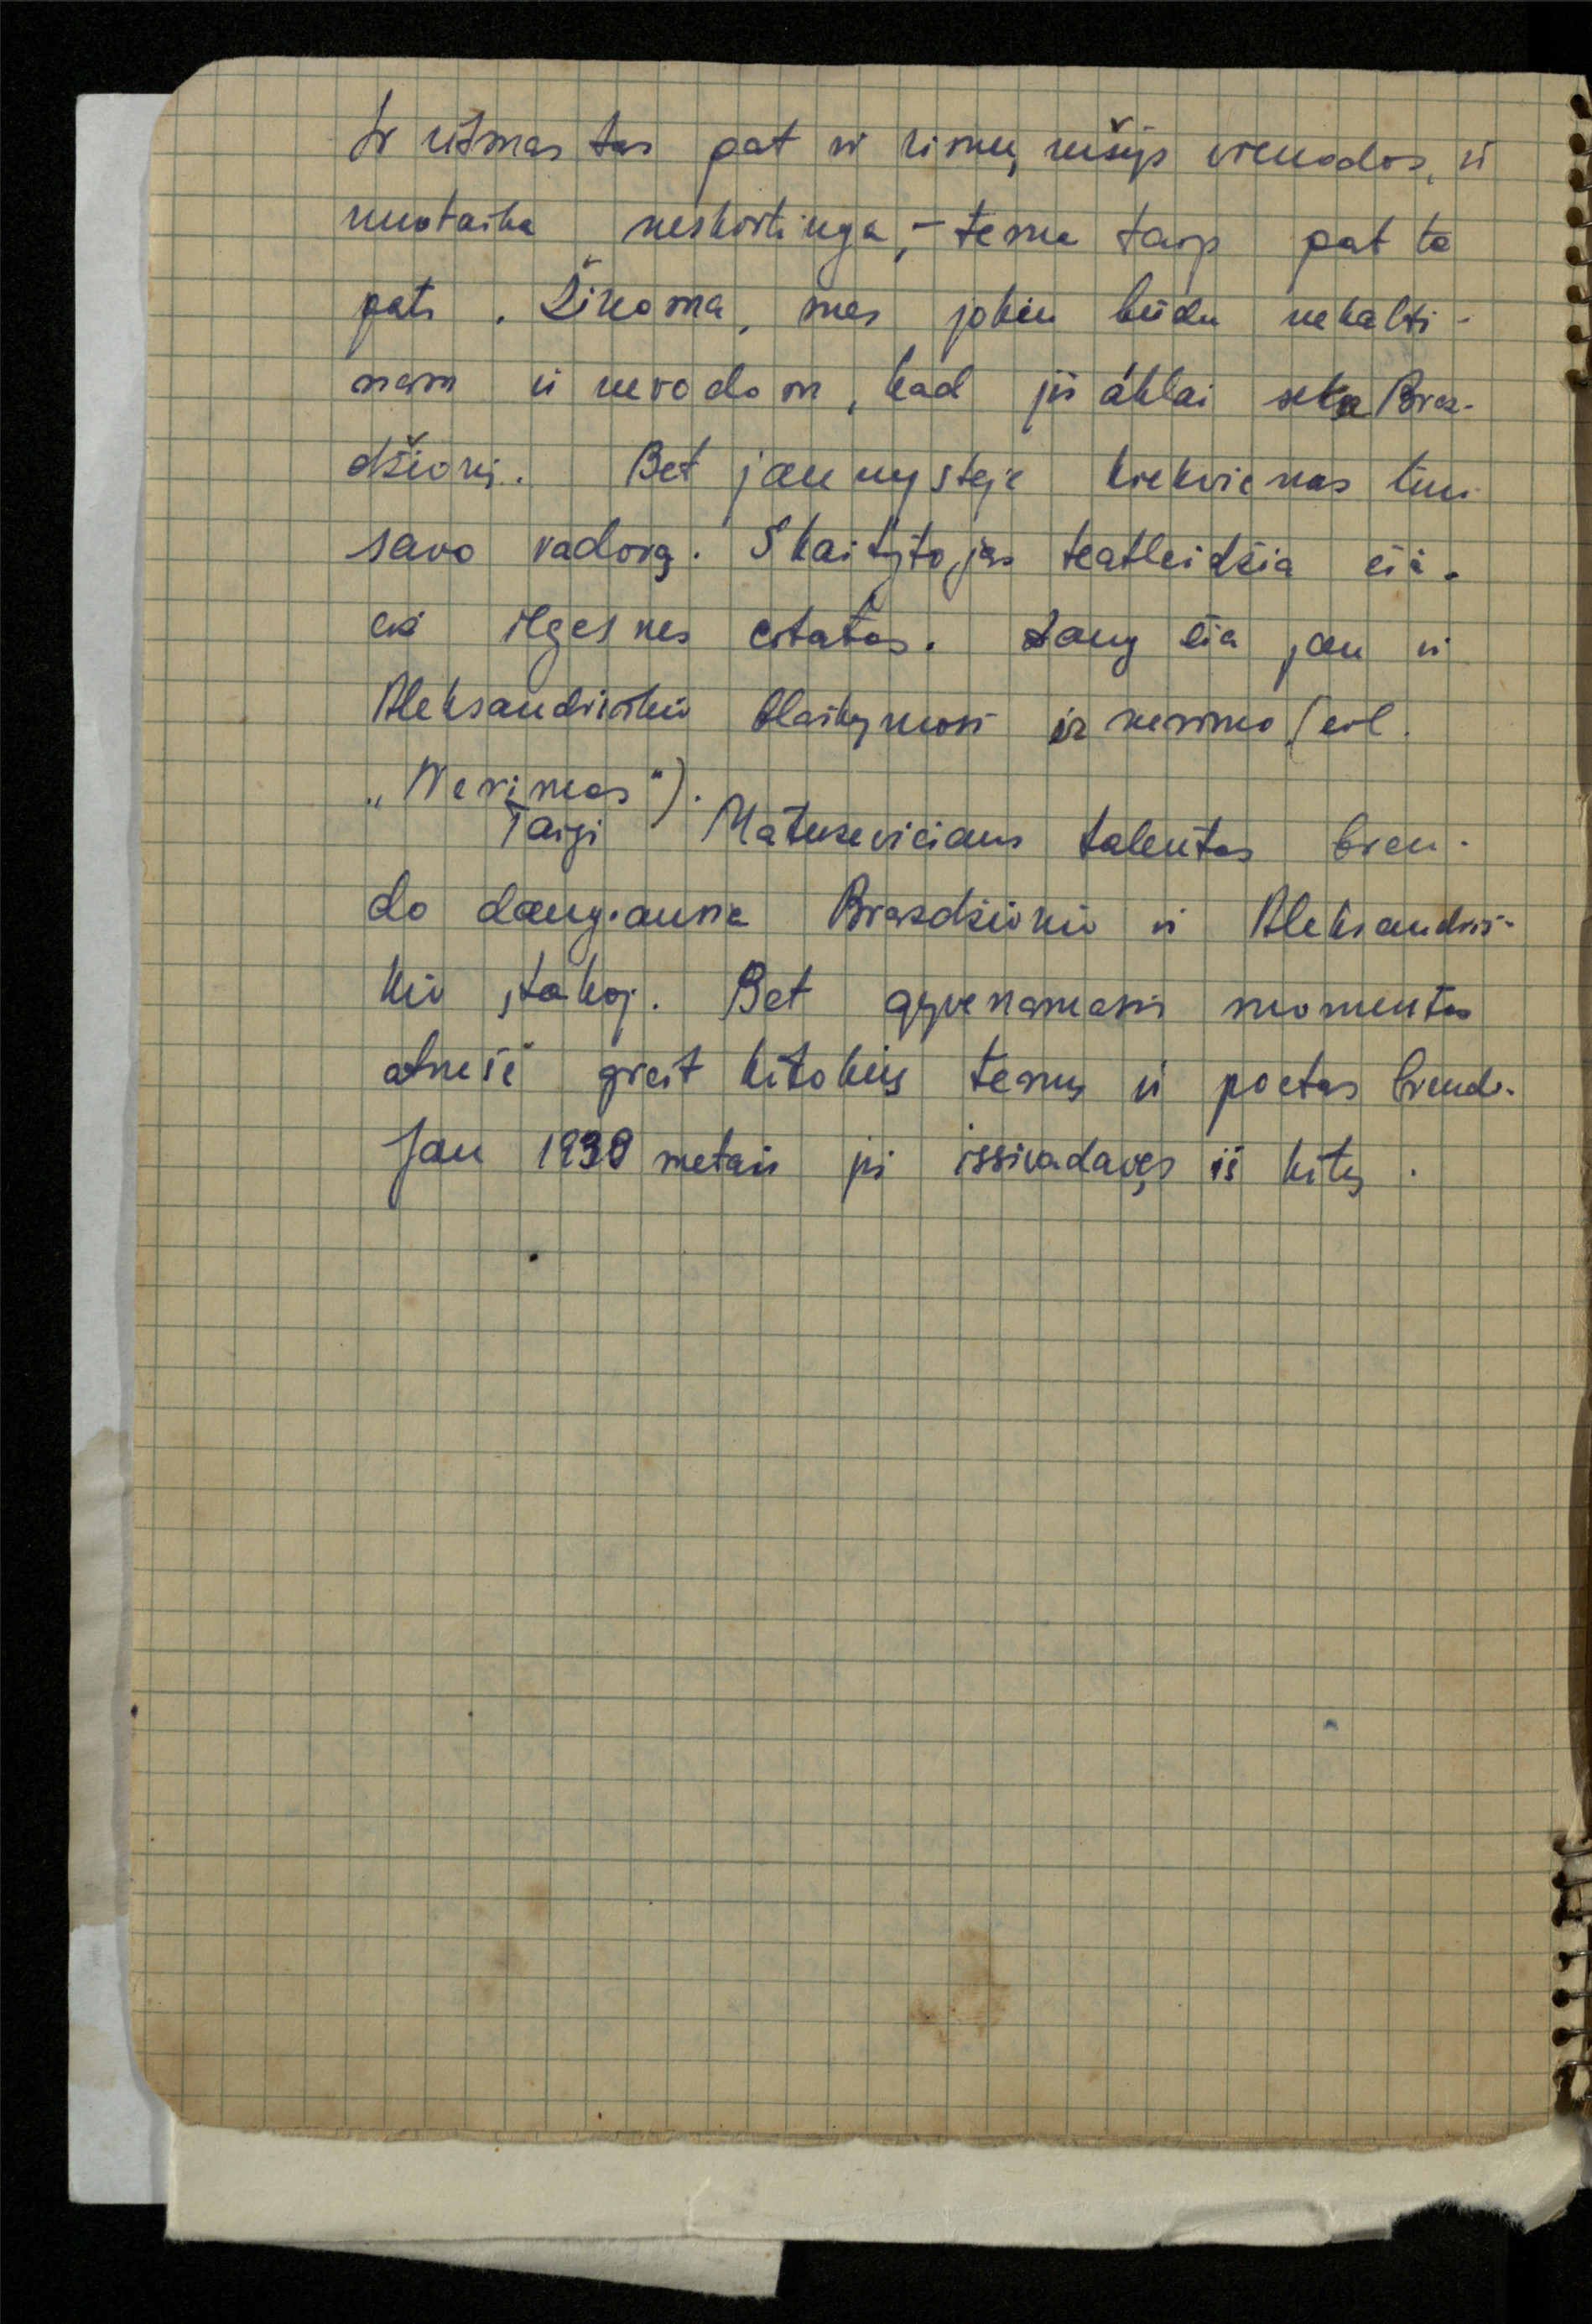 Ir ritmas tas pat ir rimų rūšys vienodos, ir
nuotaika neskirtinga, – tema taip pat ta
pati. Žinoma, mes jokiu būdu nekalti-
nam ir nerodom, kad jis aklai seka Braz-
džionį. Bet jaunystėje kiekvienas turi
savo vadovą. Skaitytojas teatleidžia čia
ilgesnes citatas. Daug čia jau ir
Aleksandriškio blaškymosi ir nerimo (eil.
„Nerimas").
Taigi Matuzevičiaus talentas bren-
do daugiausia Brazdžionio ir Aleksandriš-
kio įtakoj. Bet gyvenamasis momentas
atnešė greit kitokių temų ir poetas brendo.
Jau 1938 metais jis išsivadavęs iš kitų.